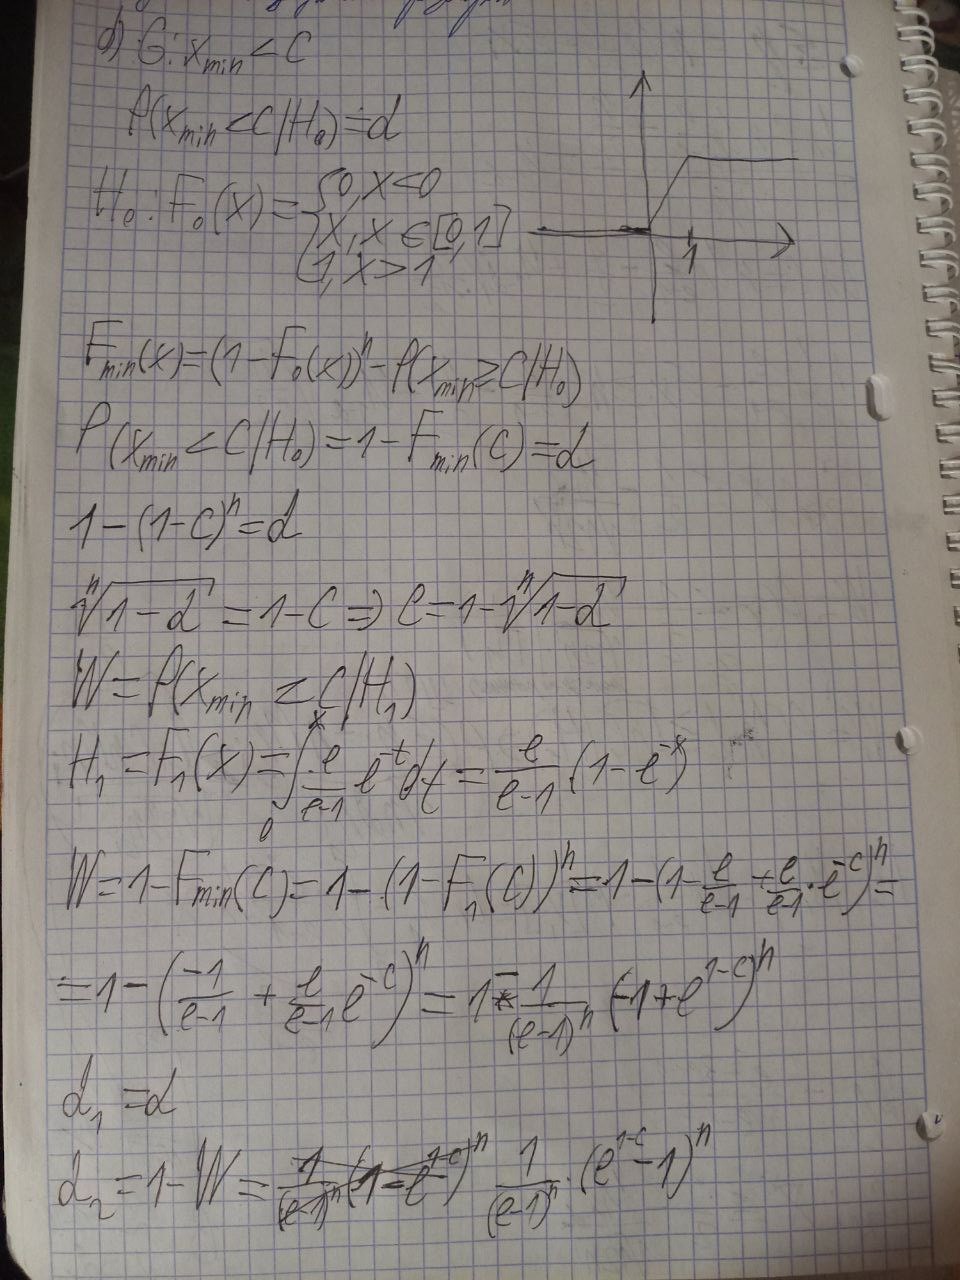 б) G: x_min < C
P(x_min < C/H_0) = α
H_0: F_0(x) = {0, x<0
x, x ∈ [0,1]
1, x > 1
1
F_min(x) = (1-F_0(x))^n - P(x_min ≥ C/H_0)
P(x_min < C/H_0) = 1 - F_min(C) = α
1 - (1-C)^n = α
ⁿ√(1-α) = 1-C => C = 1 - ⁿ√(1-α)
W = P(x_min < C/H_1)
H_1 = F_1(x) = ∫_0^x e/(e-1) e^{-t} dt = e/(e-1) (1-e^{-x})
W = 1 - F_min(C) = 1 - (1-F_1(C))^n = 1 - (1 - e/(e-1) + e/(e-1) · e^{-C})^n =
= 1 - (-1/(e-1) + e/(e-1) e^{-C})^n = 1 - 1/(e-1)^n (-1 + e^{1-C})^n
α_1 = α
α_2 = 1 - W = 1/(e-1)^n · (e^{1-C} - 1)^n